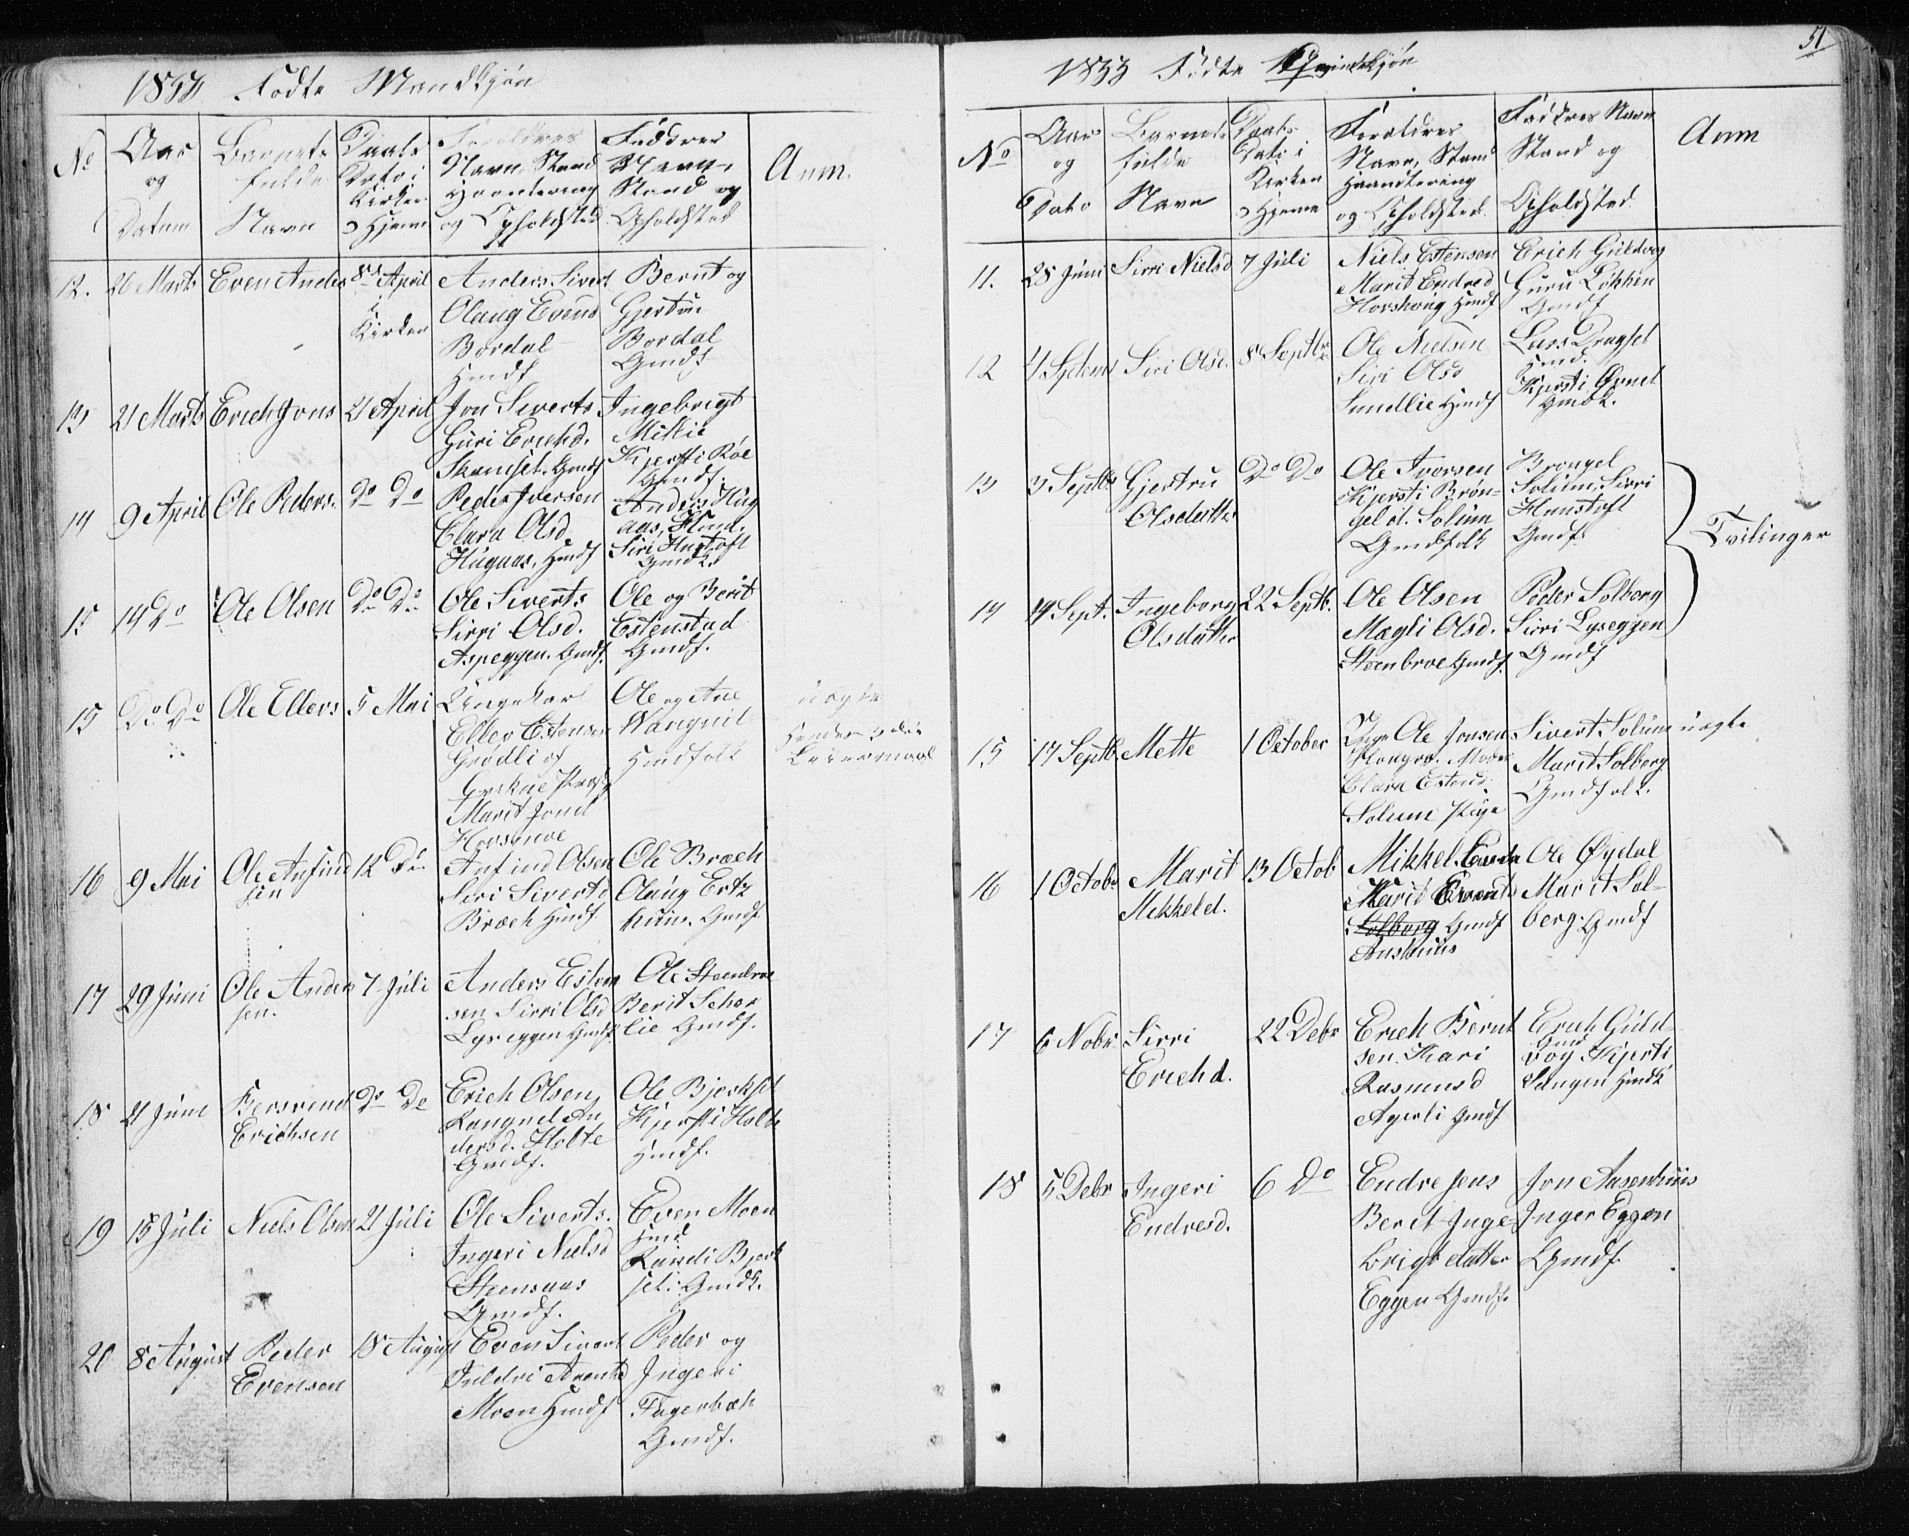 1833 Fødte Mandkjøn
No
Aar
og
Datum
Barnets
fulde
Navn
Daabs
Dato i
Kirken
Hjemme
Forældres
Navn, Stand
Haandtering
og Opholdsted
Faddres
Navn,
Stand og
Opholdsted
Anm.
12. 26 Marts Even Anders 8de April
i
Kirken
Anders Sivert
Olaug Evens
Bordal
Gmdf
Bernt og
Gjertru
Bordal
Gmdf
13 21 Marts Erich Jons 21 April
Jon Siverts
Guri Erichd.
Skamsel. Gmdf
Ingebrigt
Kjersti Röe
Gmdf.
14 9 April Ole Peders. Do Do
Peder Iversen
Clara Olsd.
Hugaas, Gmdf
Anders Hug
aas, Gmd.
Siri Hustoft
Gmdk.
15 14 Do Ole Olsen Do Do
Ole Siverts
Sirri Olsd.
Aspeggen. Gmdf.
Ole og Berit
Estenstad
Gmdf.
15 Do Do Ole Ellers 5 Mai
Ungekar
Eller Estensen
Grødli og
Marit Jonsd
Ole og Ane
Wangnil
Gmdfolk
uægte
Leiermaal
16 9 Mai Ole Anfind
sen
12 Do
Anfind Olsen
Siri Sivertsd
Bræch Gmdf
Ole Bræch
Olaug Ertz
huus. Gmdf
17 29 Juni Ole Anders
sen.
7 Juli
Anders Esten
sen Sirri Olsd
Lyseggen Gmdf
Ole Steenbroe
Berit Schar
lie Gmdf.
18 21 Juni
Erichsen
Do Do
Erich Olsen,
Rangnel An
dersd. Holte
Gmdf.
Ole Bjerksel
Kjersti Holte
Gmdf.
19 15 Juli Niels Olsen 21 Juli
Ole Siverts.
Ingeri Nielsd
Steensaas
Gmdf.
Even Moen
Gmd
Randi Bjerk
sel. Gmdk.
20 8 August Peder
Evensen
18 August
Even Sivert
Moen Gmdf
Peder og
Ingeri
Fagerbæk
Gmdf.
51
1833 Fødte Qvindekjøn
No
Aar
og
Dato
Barnets
fulde
Navn
Daabs
Dato i
Kirken
Hjemme
Forældres
Navn, Stand
Haandtering
og Opholdsted.
Faddres Navn
Stand og
Opholdsted
Anm
11. 28 Juni Sirri Nielsd 7 Juli
Niels Estensen
Marit Endresd
Horshoug Gmdf
Erich Guldvog
Guru Løkken
Gmdf
12 4 Siri Olsd. 8 Septbr
Ole Nielsen
Siri Olsd
Snudlie Gmdf
Lars Dragsel
Gmd.
Kjersti
Gmdk.
13 3 Septbr Gjertru
Olsdatter
Do Do
Ole Iversen
Kjersti Brøn-
gel d. Solum
Gmdfolk
Brøngel
Solum, Sirri
Hunstoft
Gmdf.
Tvilinger
14 14 Sept. Ingeborg
Olsdatter
22 Septb.
Ole Olsen
Magli Olsd.
Steenbroe Gmdf
Peder Solberg
Sirri Lyseggen
Gmdf
15 17 Septb. Mette 1 October
Ole Jonsen
Clara Estensd
Solum Pige
Sivert Solum
Marit Solberg
Gmdfolk.
uægte
16 1 Octobr Marit
Mikkeld.
13 Octob
Mikkel
Marit
Solberg Gmdf
Aushuus
Ole Øydal
Marit Sol-
berg. Gmdf
17 6 Nobr Sirri
Erichd.
22 Debr
Erich Bernt
sen. Kari
Rasmusd
Agerli Gmdf
Erich Guld-
Gmd
vog Kjersti
Langen Gmdk
18 5 Debr Ingeri
Endresd.
6 Do
Endre Jens
Berit Inge
brigtdatter
Eggen Gmdf.
Jon Aasenhuus
Inger Eggen
Gmdf.